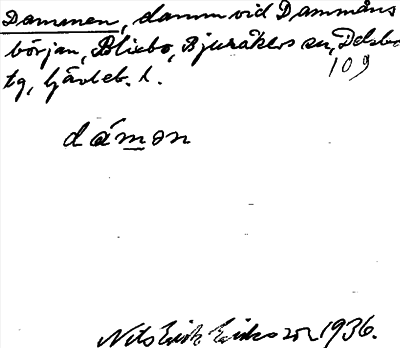 Dammen, damm vid Dammåns
början, Blixbo, Bjuråkers sn, Delsbo
109
tg, Gävleb. l.
dámən
Nils Erik Eriksson 1936.